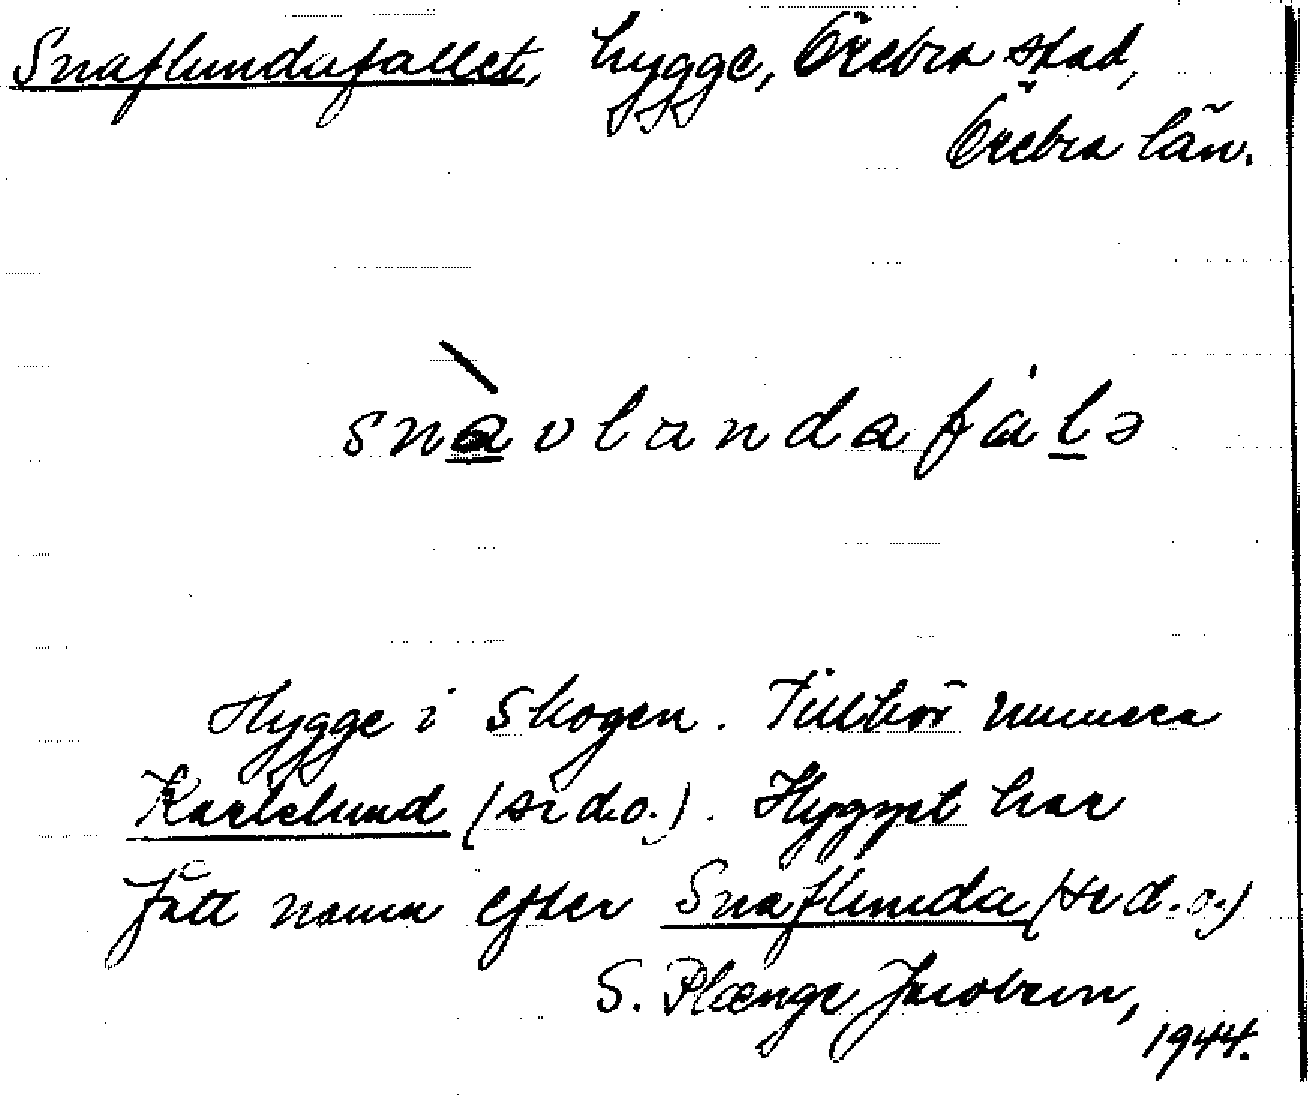 Snaflundafallet, hygge, Örebro stad,
Örebro län.
snàvlandafálə
Hygge i skogen. Tillhör numera
Karlslund (se d.o.). Hygget har
fått namn efter Snaflunda (se d.o.)
S. Plænge Jacobson,
1944.